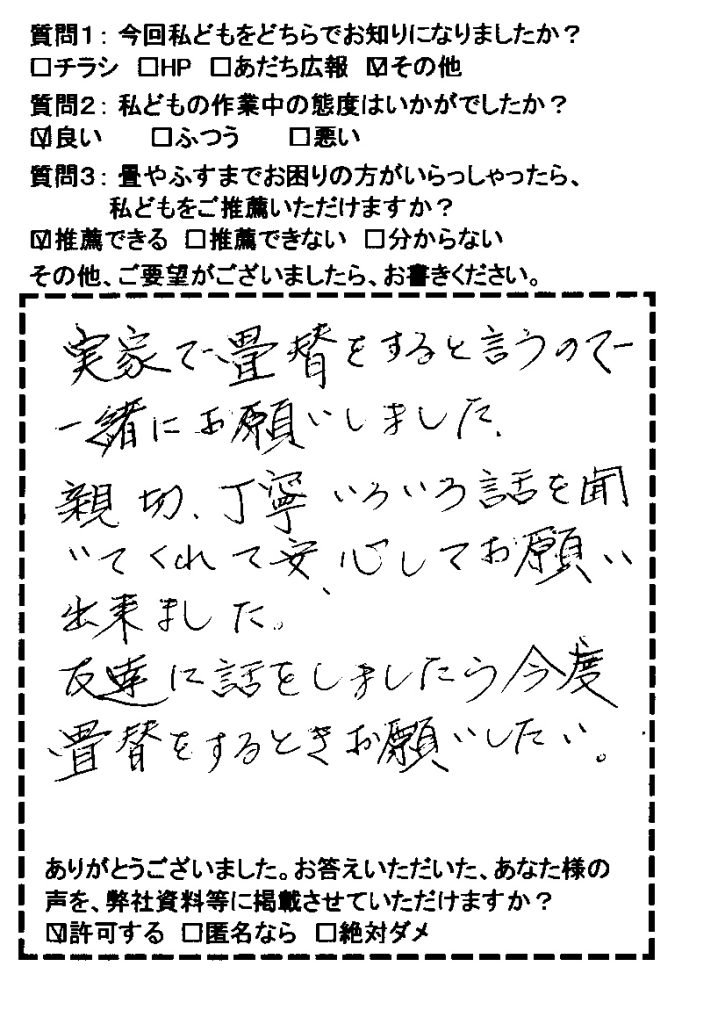 質問1：今回私どもをどちらでお知りになりましたか？
□チラシ □HP □あだち広報 ☑その他
質問2：私どもの作業中の態度はいかがでしたか？
☑良い □ふつう □悪い
質問3：畳やふすまでお困りの方がいらっしゃったら、
私どもをご推薦いただけますか？
☑推薦できる □推薦できない □分からない
その他、ご要望がございましたら、お書きください。
実家で畳替をすると言うので
一緒にお願いしました、
親切、丁寧いろいろ話を聞
いてくれて安心してお願い
出来ました。
友達に話をしましたら今度
畳替をするときお願いしたい。
ありがとうございました。お答えいただいた、あなた様の
声を、弊社資料等に掲載させていただけますか？
☑許可する □匿名なら □絶対ダメ